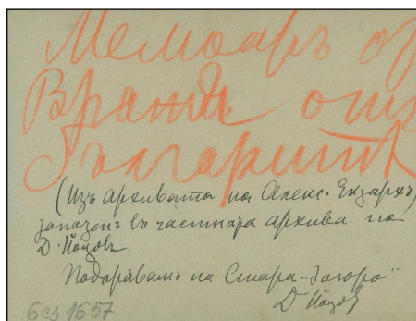 Мемоаръ
Врачи отъ
Българитѣ
(Изъ архивата на Алекс. Екзархъ)
запазенъ въ частната архива на
Д. Поповъ
Подарявамъ на Стара-Загора
Д Поповъ